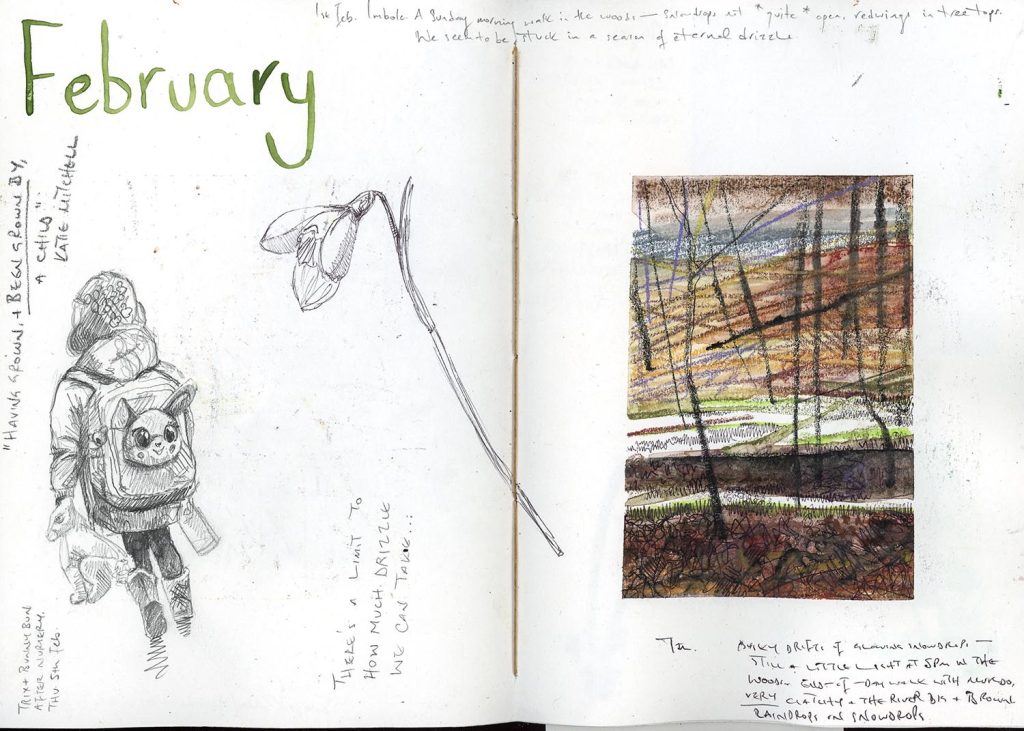 February
1st Feb. Imbolc. A Sunday morning walk in the woods — snowdrops not *quite* open, redwings in treetops.
We seem to be stuck in a season of eternal drizzle
"HAVING GROWN, + BEEN GROWN BY,
A CHILD"
KATIE MITCHELL
TRIX + BUNNY BUN
AFTER NURSERY.
THU 5th Feb.
THERE'S A LIMIT TO
HOW MUCH DRIZZLE
WE CAN TAKE...
DRIFTS OF GLOWING SNOWDROPS —
STILL A LITTLE LIGHT AT 5PM IN THE
WOODS. END-OF-DAY WALK WITH
VERY + THE RIVER BIG + BROWN
RAINDROPS ON SNOWDROPS